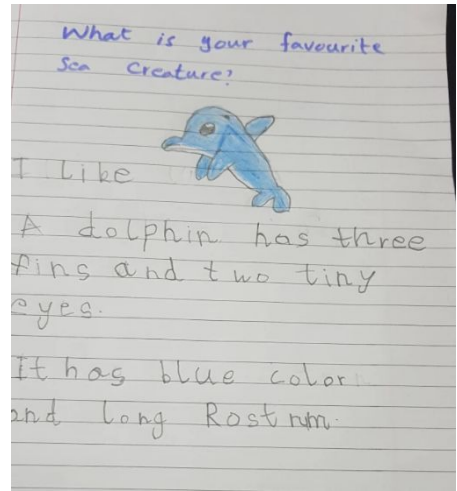 What is your favourite
Sea Creature?
I Like
A dolphin has three
fins and two tiny
eyes.
It has blue color
and long Rostrum.